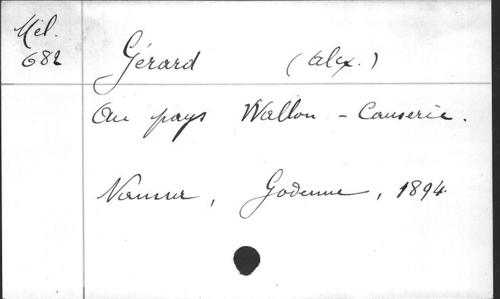 Mél.
682
Gérard (Alex.)
Au pays Wallon - Causerie.
Namur, Godenne, 1894.